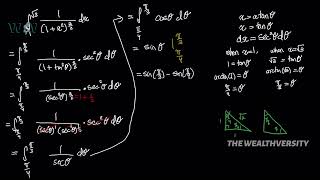 ∫₁^√3 1/(1+x²)^(3/2) dx
= ∫_{π/4}^{π/3} 1/(1+tan²θ)^(3/2) · sec²θ dθ
= ∫_{π/4}^{π/3} 1/(sec²θ)^(3/2) · sec²θ dθ
= ∫_{π/4}^{π/3} 1/((secθ)(sec²θ)) · sec²θ dθ
= ∫_{π/4}^{π/3} 1/secθ dθ
= ∫_{π/4}^{π/3} cosθ dθ
= sinθ |_{π/4}^{π/3}
= sin(π/3) - sin(π/4)
x = tanθ
dx = sec²θ dθ
when x=1, when x=√3
1 = tanθ √3 = tanθ
π/4 = θ π/3 = θ
THE WEALTHVERSITY